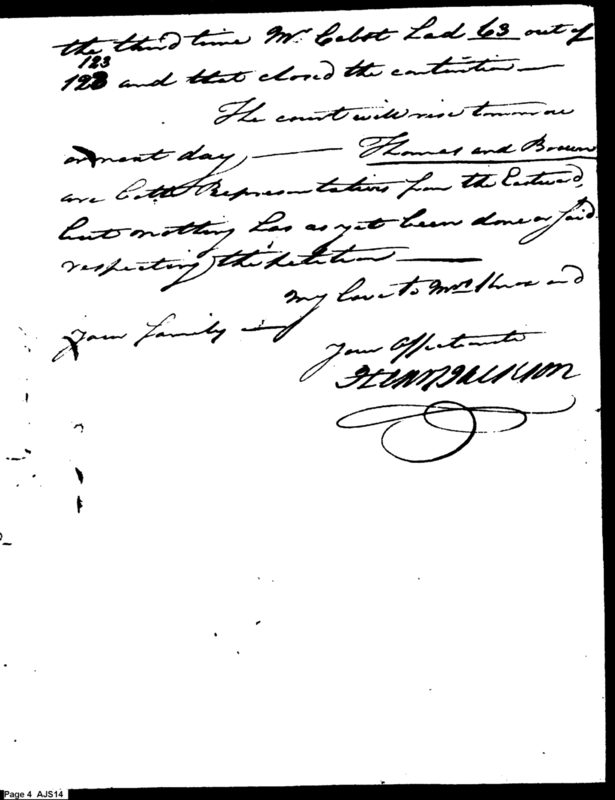 the third time Mr. Cabot had 63 out of
123
123 and that closed the contention —
The court will rise tomorrow
or next day, — Thomas and Brown
are both Representatives from the Eastward,
but nothing has as yet been done or said
respecting the petition —
My love to Mrs Knox and
your family —
Your Affectionate
Henry Jackson
Page 4 AJS14